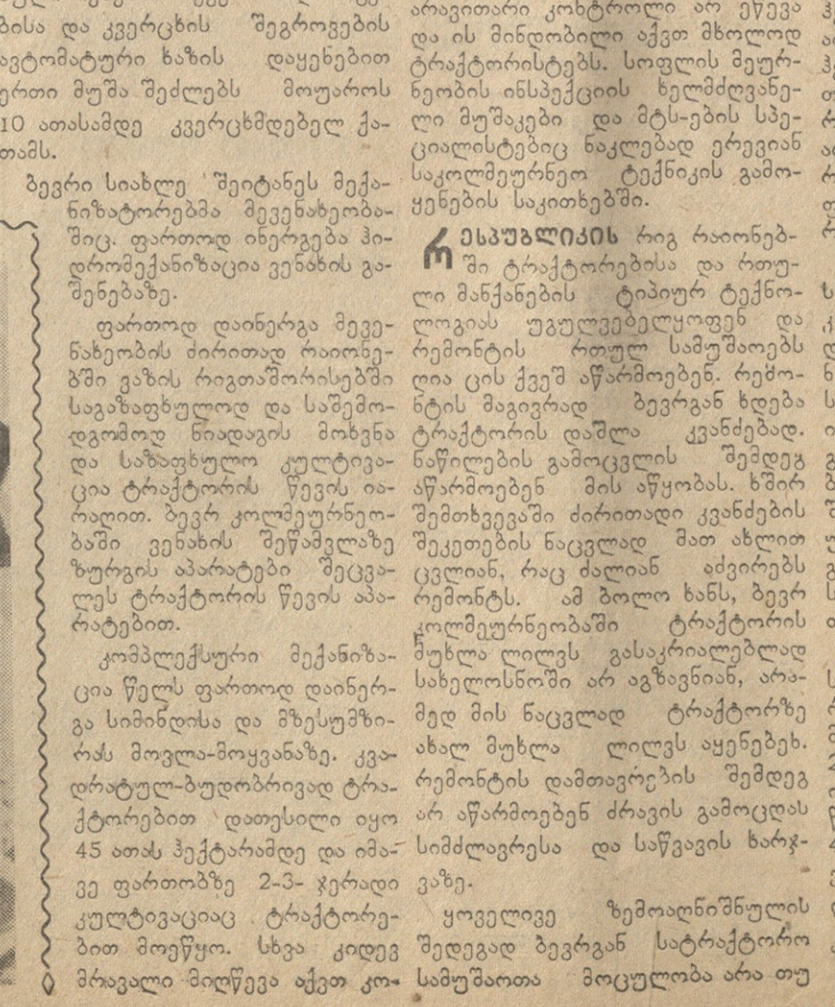 ბისა და კვერცხის შეგროვების
ავტომატური ხაზის დაყენებით
ერთი მუშა შეძლებს მოუაროს
10 ათასამდე კვერცხმდებელ ქა-
თამს.
ბევრი სიახლე შეიტანეს მექა-
ნიზატორებმა მევენახეობა-
შიც. ფართოდ ინერგება ჰი-
დრომექანიზაცია ვენახის გა-
შენებაზე.
ფართოდ დაინერგა მევე-
ნახეობის ძირითად რაიონე-
ბში ვაზის რიგთაშორისებში
საგაზაფხულოდ და საშემო-
დგომოდ ნიადაგის მოხვნა
და საზაფხულო კულტივა-
ცია ტრაქტორის წევის ია-
რაღით. ბევრ კოლმეურნეო-
ბაში ვენახის შეწამვლაზე
ზურგის აპარატები შეცვა-
ლეს ტრაქტორის წევის აპა-
რატებით.
კომპლექსური მექანიზა-
ცია წელს ფართოდ დაინერ-
გა სიმინდისა და მზესუმზი-
რას მოვლა-მოყვანაზე. კვა-
დრატულ-ბუდობრივად ტრა-
ქტორებით დათესილი იყო
45 ათას ჰექტარამდე და იმა-
ვე ფართობზე 2-3- ჯერადი
კულტივაციაც ტრაქტორე-
ბით მოეწყო. სხვა კიდევ
მრავალი მიღწევა აქვთ კო-
არავითარი კონტროლი არ ეწევა
და ის მინდობილი აქვთ მხოლოდ
ტრაქტორისტებს. სოფლის მეურ-
ნეობის ინსპექციის ხელმძღვანე-
ლი მუშაკები და მტს-ების სპე-
ციალისტებიც ნაკლებად ერევიან
საკოლმეურნეო ტექნიკის გამო-
ყენების საკითხებში.
რესპუბლიკის რიგ რაიონებ-
ში ტრაქტორებისა და რთუ-
ლი მანქანების ტიპიურ ტექნო-
ლოგიას უგულვებელყოფენ და
რემონტის რთულ სამუშაოებს
ღია ცის ქვეშ აწარმოებენ. რემო-
ნტის მაგივრად ბევრგან ხდება
ტრაქტორის დაშლა კვანძებად.
ნაწილების გამოცვლის შემდეგ
აწარმოებენ მის აწყობას. ხშირ
შემთხვევაში ძირითადი კვანძების
შეკეთების ნაცვლად მათ ახლით
ცვლიან, რაც ძალიან აძვირებს
რემონტს. ამ ბოლო ხანს, ბევრ
კოლმეურნეობაში ტრაქტორის
მუხლა ლილვს გასაკრიალებლად
სახელოსნოში არ აგზავნიან, არა-
მედ მის ნაცვლად ტრაქტორზე
ახალ მუხლა ლილვს აყენებენ.
რემონტის დამთავრების შემდეგ
არ აწარმოებენ ძრავის გამოცდას
სიმძლავრესა და საწვავის ხარჯ-
ვაზე.
ყოველივე ზემოაღნიშნულის
შედეგად ბევრგან სატრაქტორო
სამუშაოთა მოცულობა არა თუ